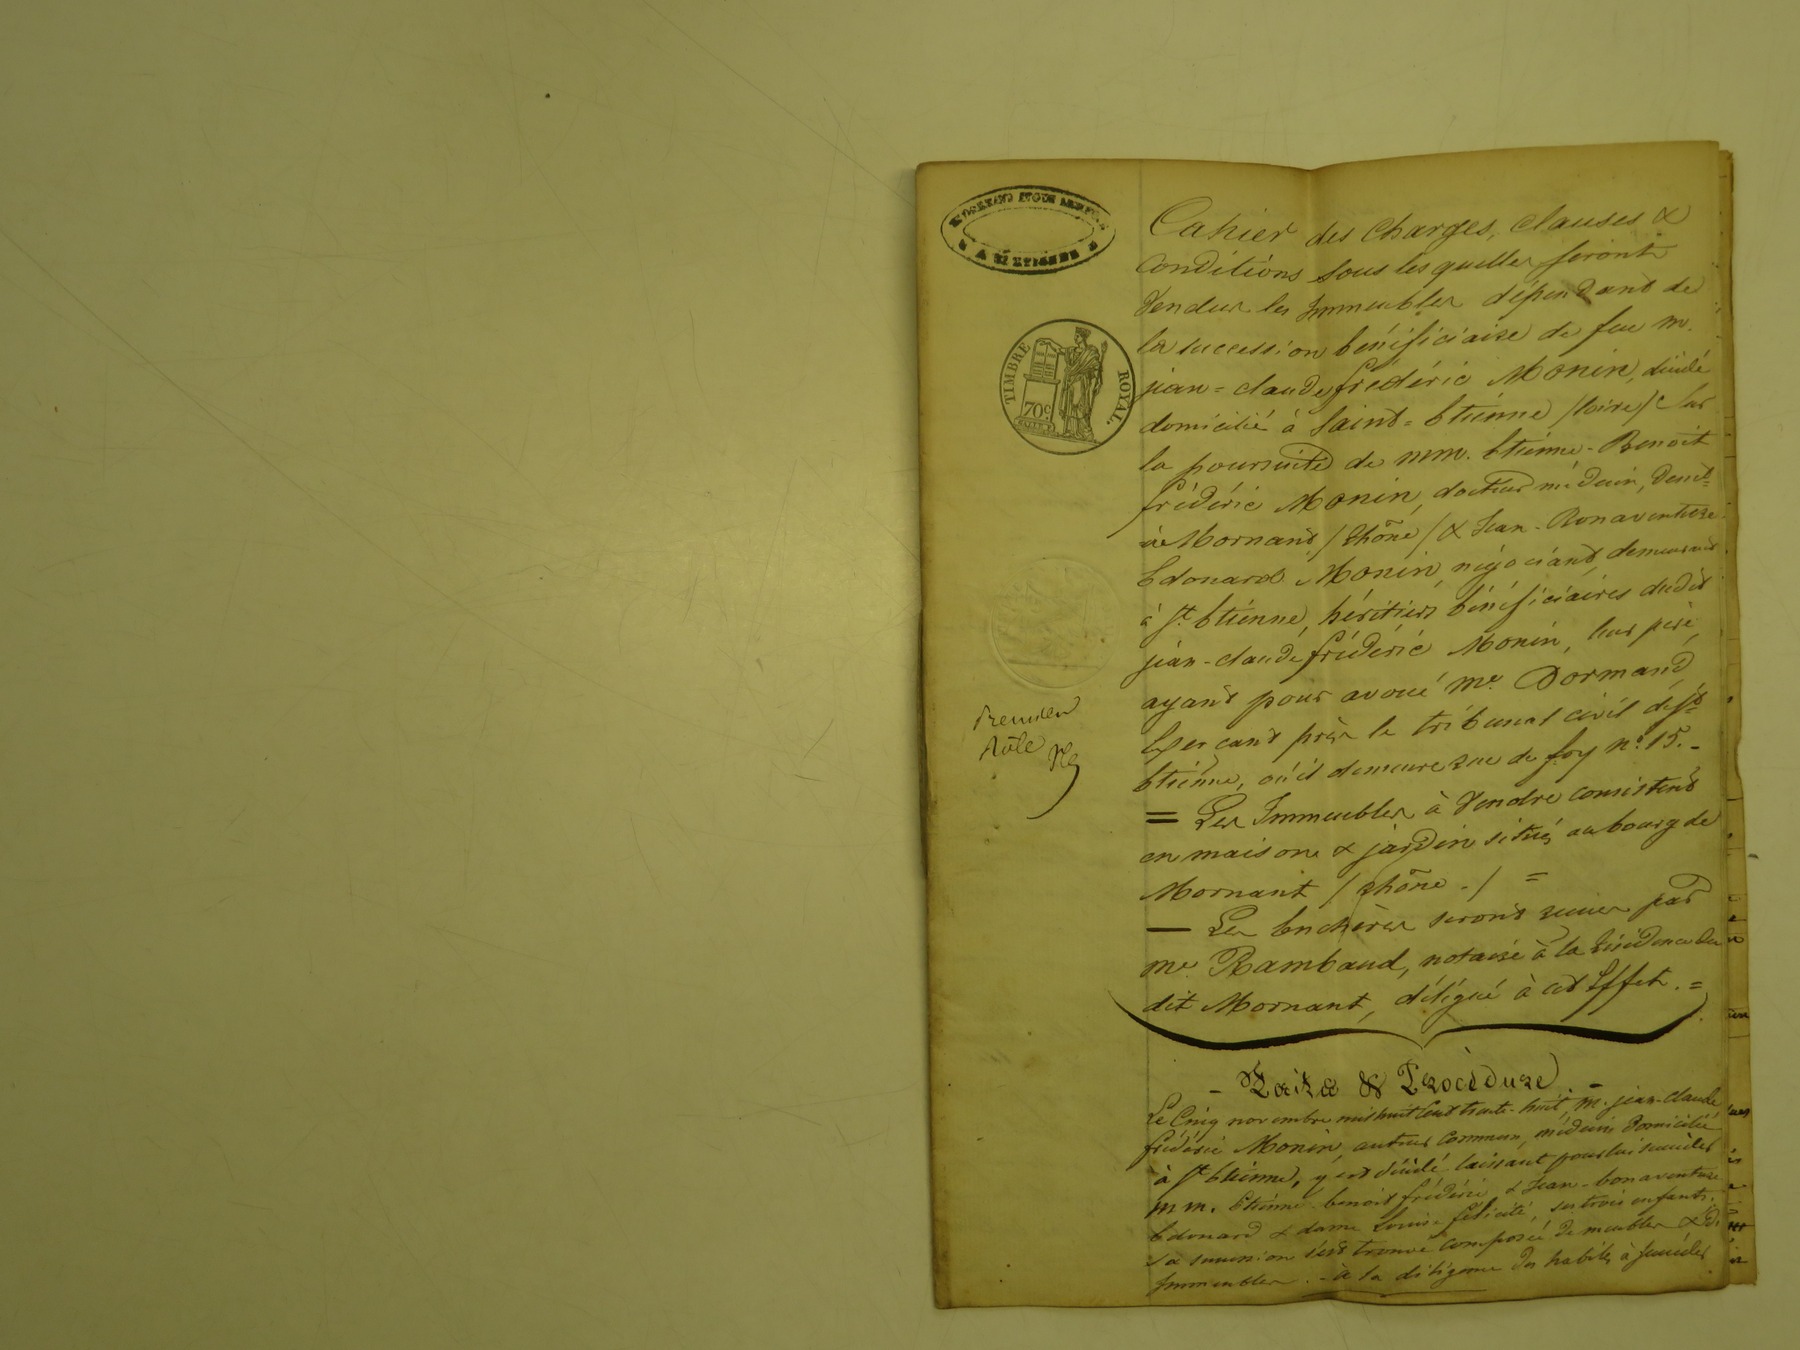 TIMBRE ROYAL.
70c.
Premier
Rôle
Cahier des Charges, clauses &
Conditions sous lesquelles seront
Vendus les Immeubles dépendant de
la succession bénéficiaire de feu m.
jean=claude frédéric Monin, décédé
domicilié à Saint=Etienne /loire/ Sur
la poursuite de mm. Etienne-Benoit
frédéric Monin, docteur médecin, demt
à Mornant /Rhône/ & Jean-Bonaventure
Edouard Monin, négociant, demeurant
à St Etienne, héritiers bénéficiaires dudit
jean-claude frédéric Monin, leur père,
ayant pour avoué Me Dormand,
Exerçant près le tribunal civil de St
Etienne, où il demeure rue de foy no 15.-
= Les Immeubles à Vendre consistent
en maison & jardin situés au bourg de
Mornant /Rhône-/ =
— Les Enchères seront reçues par
me Rambaud, notaire à la résidence du
dit Mornant, délégué à cet Effet.=
- Faits & Procédure.-
Le Cinq novembre mil huit Cent trente-huit, M. jean-claude
frédéric Monin, auteur commun, médecin domicilié
à St Etienne, y est décédé laissant pour lui succéder
mm. Etienne-benoit frédéric & Jean-bonaventure
Edouard & dame Louise félicité, ses trois enfants.
Sa succession s'est trouvé composée de meubles & d'
Immeubles.- à la diligence des habiles à succéder